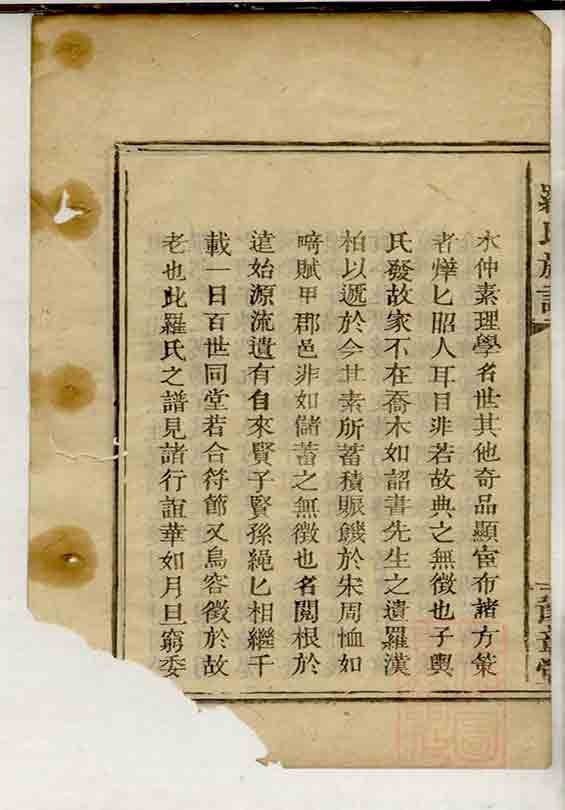 羅氏族譜
章堂
水仲素理學名世其他奇品顯宦布諸方策
者燁匕昭人耳目非若故典之無徵也子輿
氏發故家不在喬木如韶書先生之遺羅漢
柏以遞於今其素所蓄積賑饑於宋周恤如
疇賦甲郡邑非如儲蓄之無徵也名閥根於
遠始源流遺有自來賢子賢孫繩匕相繼千
載一日百世同堂若合符節又烏容徵於故
老也此羅氏之譜見諸行誼華如月旦窮委